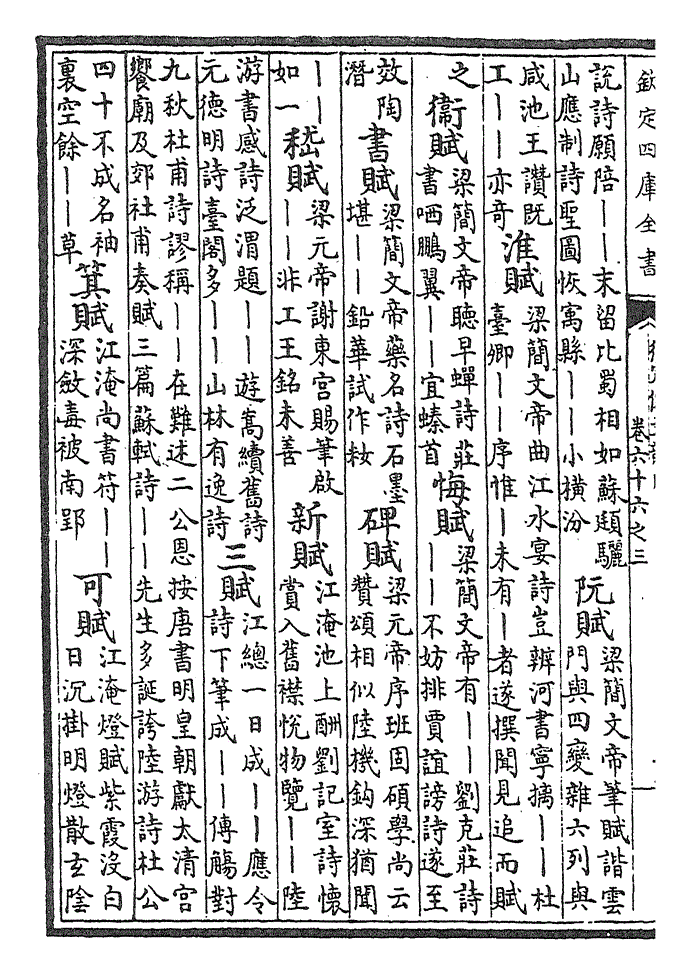 欽定四庫全書
卷六十六之三
說詩願陪——末留比蜀相如蘇頲驪
山應制詩聖圖恢寓縣——小橫汾
阮賦
梁簡文帝筆賦諧雲
門與四變雜六列與
咸池王讚既
工——亦奇
淮賦
梁簡文帝曲江水宴詩豈辨河書寧摛——杜
臺卿——序惟—未有—者遂撰聞見追而賦
之
衞賦
梁簡文帝聽早蟬詩莊
書哂鵬翼——宜螓首
悔賦
梁簡文帝有——劉克莊詩
——不妨排賈誼謗詩遂至
效陶
潛
書賦
梁簡文帝藥名詩石墨
堪——鉛華試作粧
碑賦
梁元帝序班固碩學尚云
贊頌相似陸機鈎深猶聞
——
如一
嵇賦
梁元帝謝東宮賜筆啟
——非工王銘未善
新賦
江淹池上酬劉記室詩懷
賞入舊襟悅物覽——陸
游書感詩泛渭題——遊嵩續舊詩
元德明詩臺閣多——山林有逸詩
三賦
江總一日成——應令
詩下筆成——傳觴對
九秋杜甫詩謬稱——在難述二公恩按唐書明皇朝獻太清宮
饗廟及郊社甫奏賦三篇蘇軾詩——先生多誕誇陸游詩杜公
四十不成名袖
裏空餘——草
箕賦
江淹尚書符——
深斂毒被南郢
可賦
江淹燈賦紫霞沒白
日沉掛明燈散玄陰